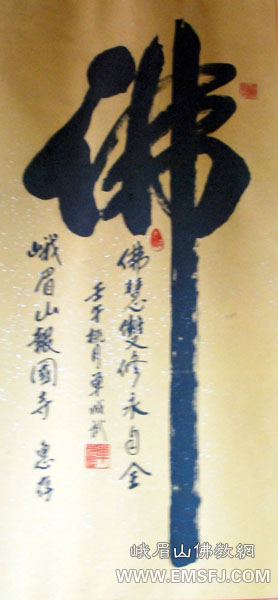 佛
佛慧雙修永自全
壬午桃月
峨眉山報國寺 惠存
峨眉山佛教網
WWW.EMSFJ.COM